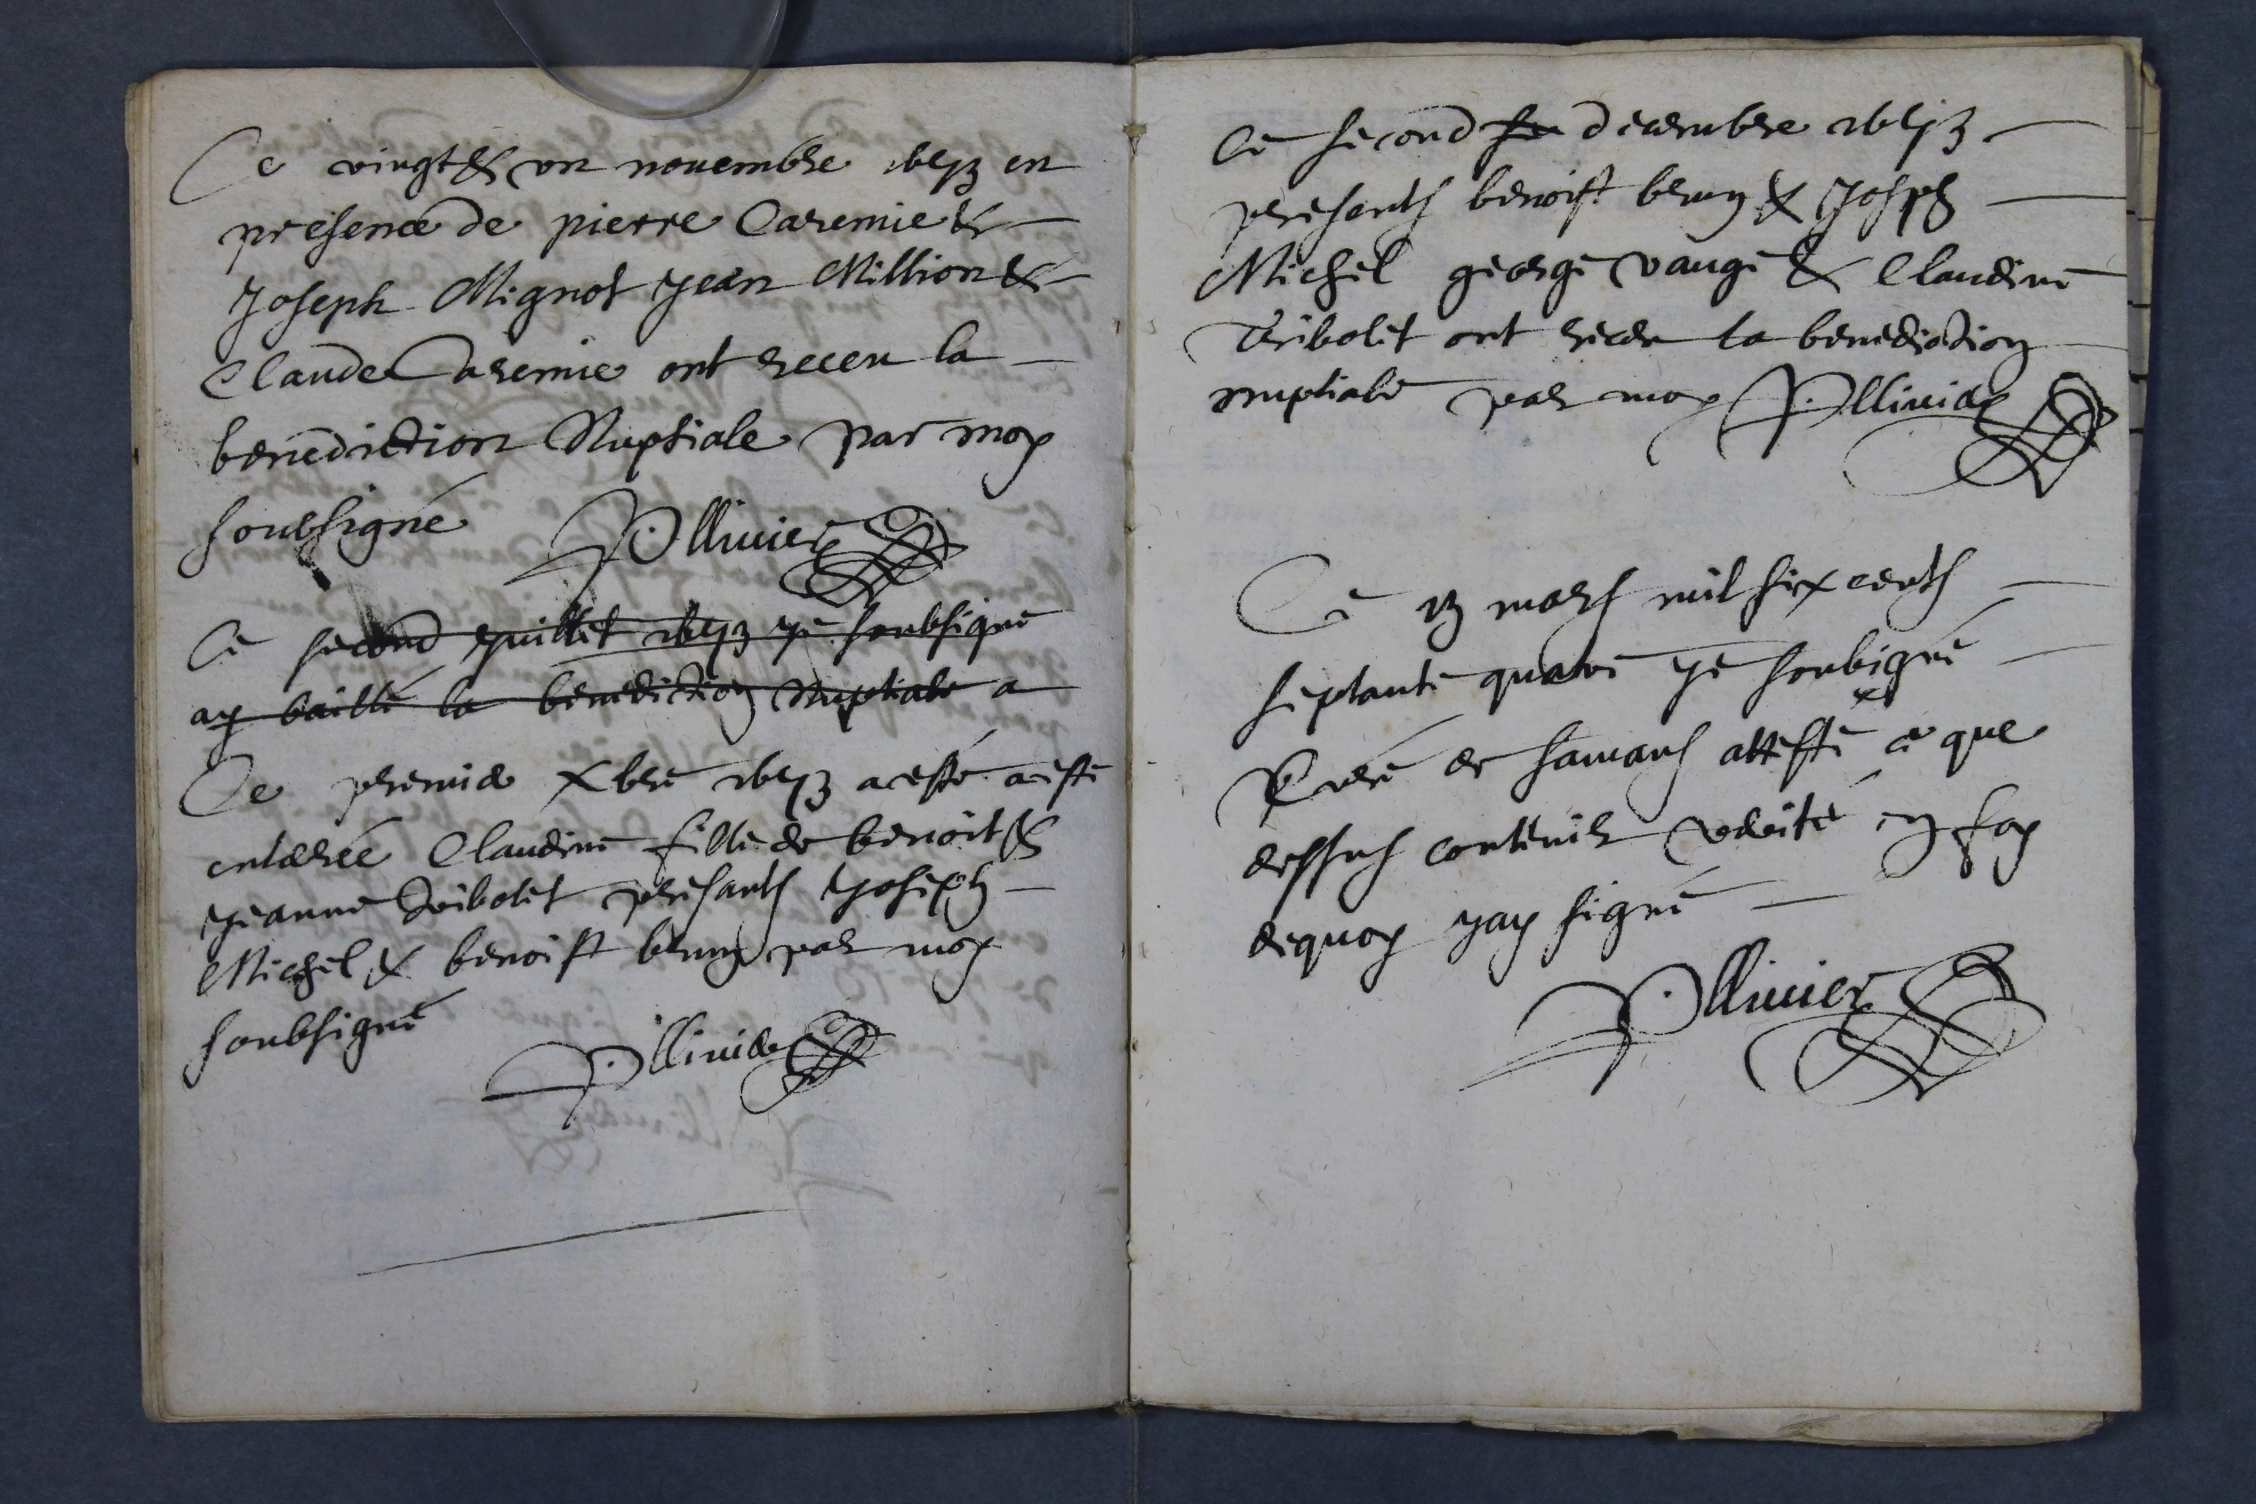 Ce vingt & un nouembre 1673 en
presence de pierre Caremie &
Joseph Mignot Jean Million &
Claude Caremie ont receu la
benediction Nuptiale par moy
soubsigné P. Ollivier
Ce second Juillet 1673 je soubsigné
ay baillé la benediction nuptiale a
Ce premier Xbre 1673 a esté a esté
enterrée Claudine fille de benoit &
Jeanne Tribolet presants Joseph
Michel & benoist brun par moy
soubsigné P. Ollivier
Ce second decembre 1673
presants benoist brun & Joseph
Michel george vauge & Claudine
Tribolet ont receu la benediction
nuptiale par moy P. Ollivier
Ce mars mil six cents
septante quatre je soubigné
Curé de Samans atteste ce que
dessus contenir verité en foy
dequoy jay signé
P. Ollivier